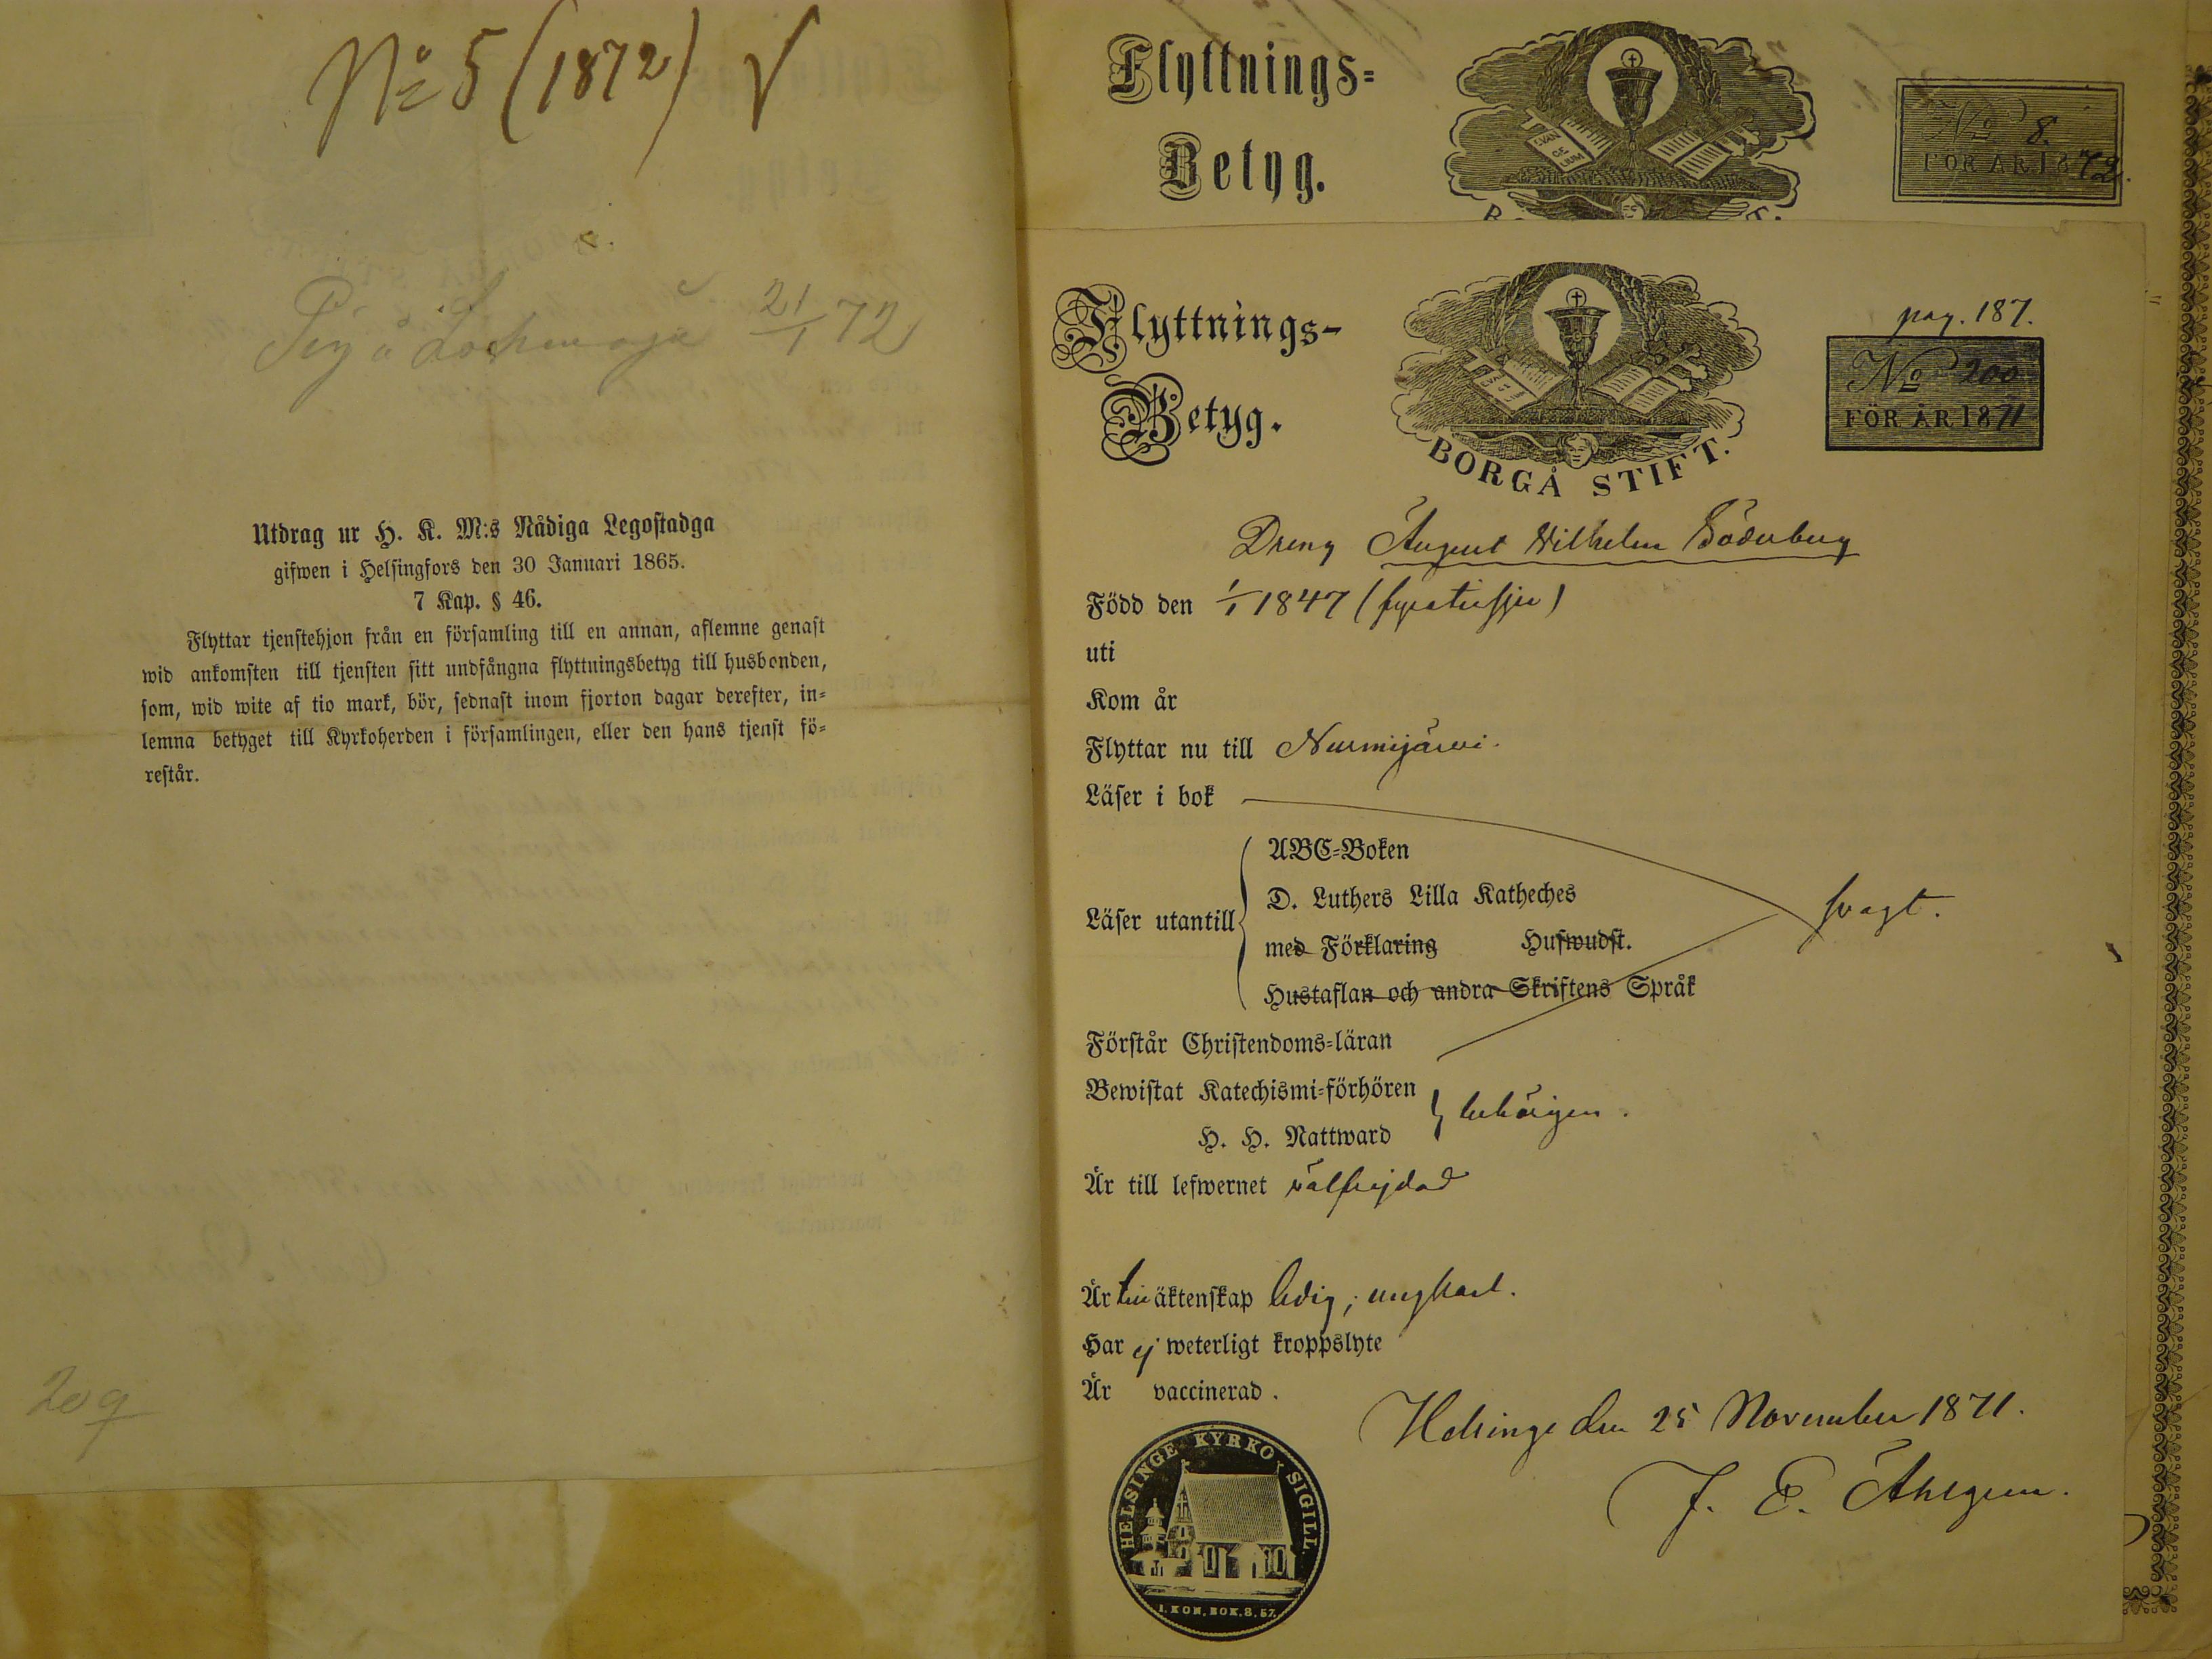 No 5 (1872) √
21/1 72
Utdrag ur H. K. M:s Nådiga Legostadga
gifwen i Helsingfors den 30 Januari 1865.
7 Kap. § 46.
Flyttar tjenstehjon från en församling till en annan, aflemne genast
wid ankomsten till tjensten sitt undfångna flyttningsbetyg till husbonden,
som, wid wite af tio mark, bör, sednast inom fjorton dagar derefter, in=
lemna betyget till Kyrkoherden i församlingen, eller den hans tjenst fö=
restår.
209
Flyttnings=
Betyg.
EVAN
GE
LIUM
No 8.
FÖR ÅR 1872.
Flyttnings-
Betyg.
BORGÅ STIFT.
pag. 187.
No 200
FÖR ÅR 1871
Dreng August Wilhelm Söderberg
Född den 1/1 1847 (fyratiosju)
uti
Kom år
Flyttar nu till Nurmijärvi.
Läser i bok
ABC=Boken
D. Luthers Lilla Katheches
Läser utantill
svagt.
med Förklaring Huswudst.
Hustaflan och andra Skriftens Språk
Förstår Christendoms=läran
Bewistat Katechismi=förhören
behörigen.
H. H. Nattward
Är till lefwernet välfrejdad
Är till äktenskap ledig, ungkarl.
Har ej weterligt kroppslyte
Är vaccinerad.
Helsinge den 25 November 1871.
J. E. Åhlgren.
HELSINGE KYRKO SIGILL.
1. KON. BOK. 8. 57.